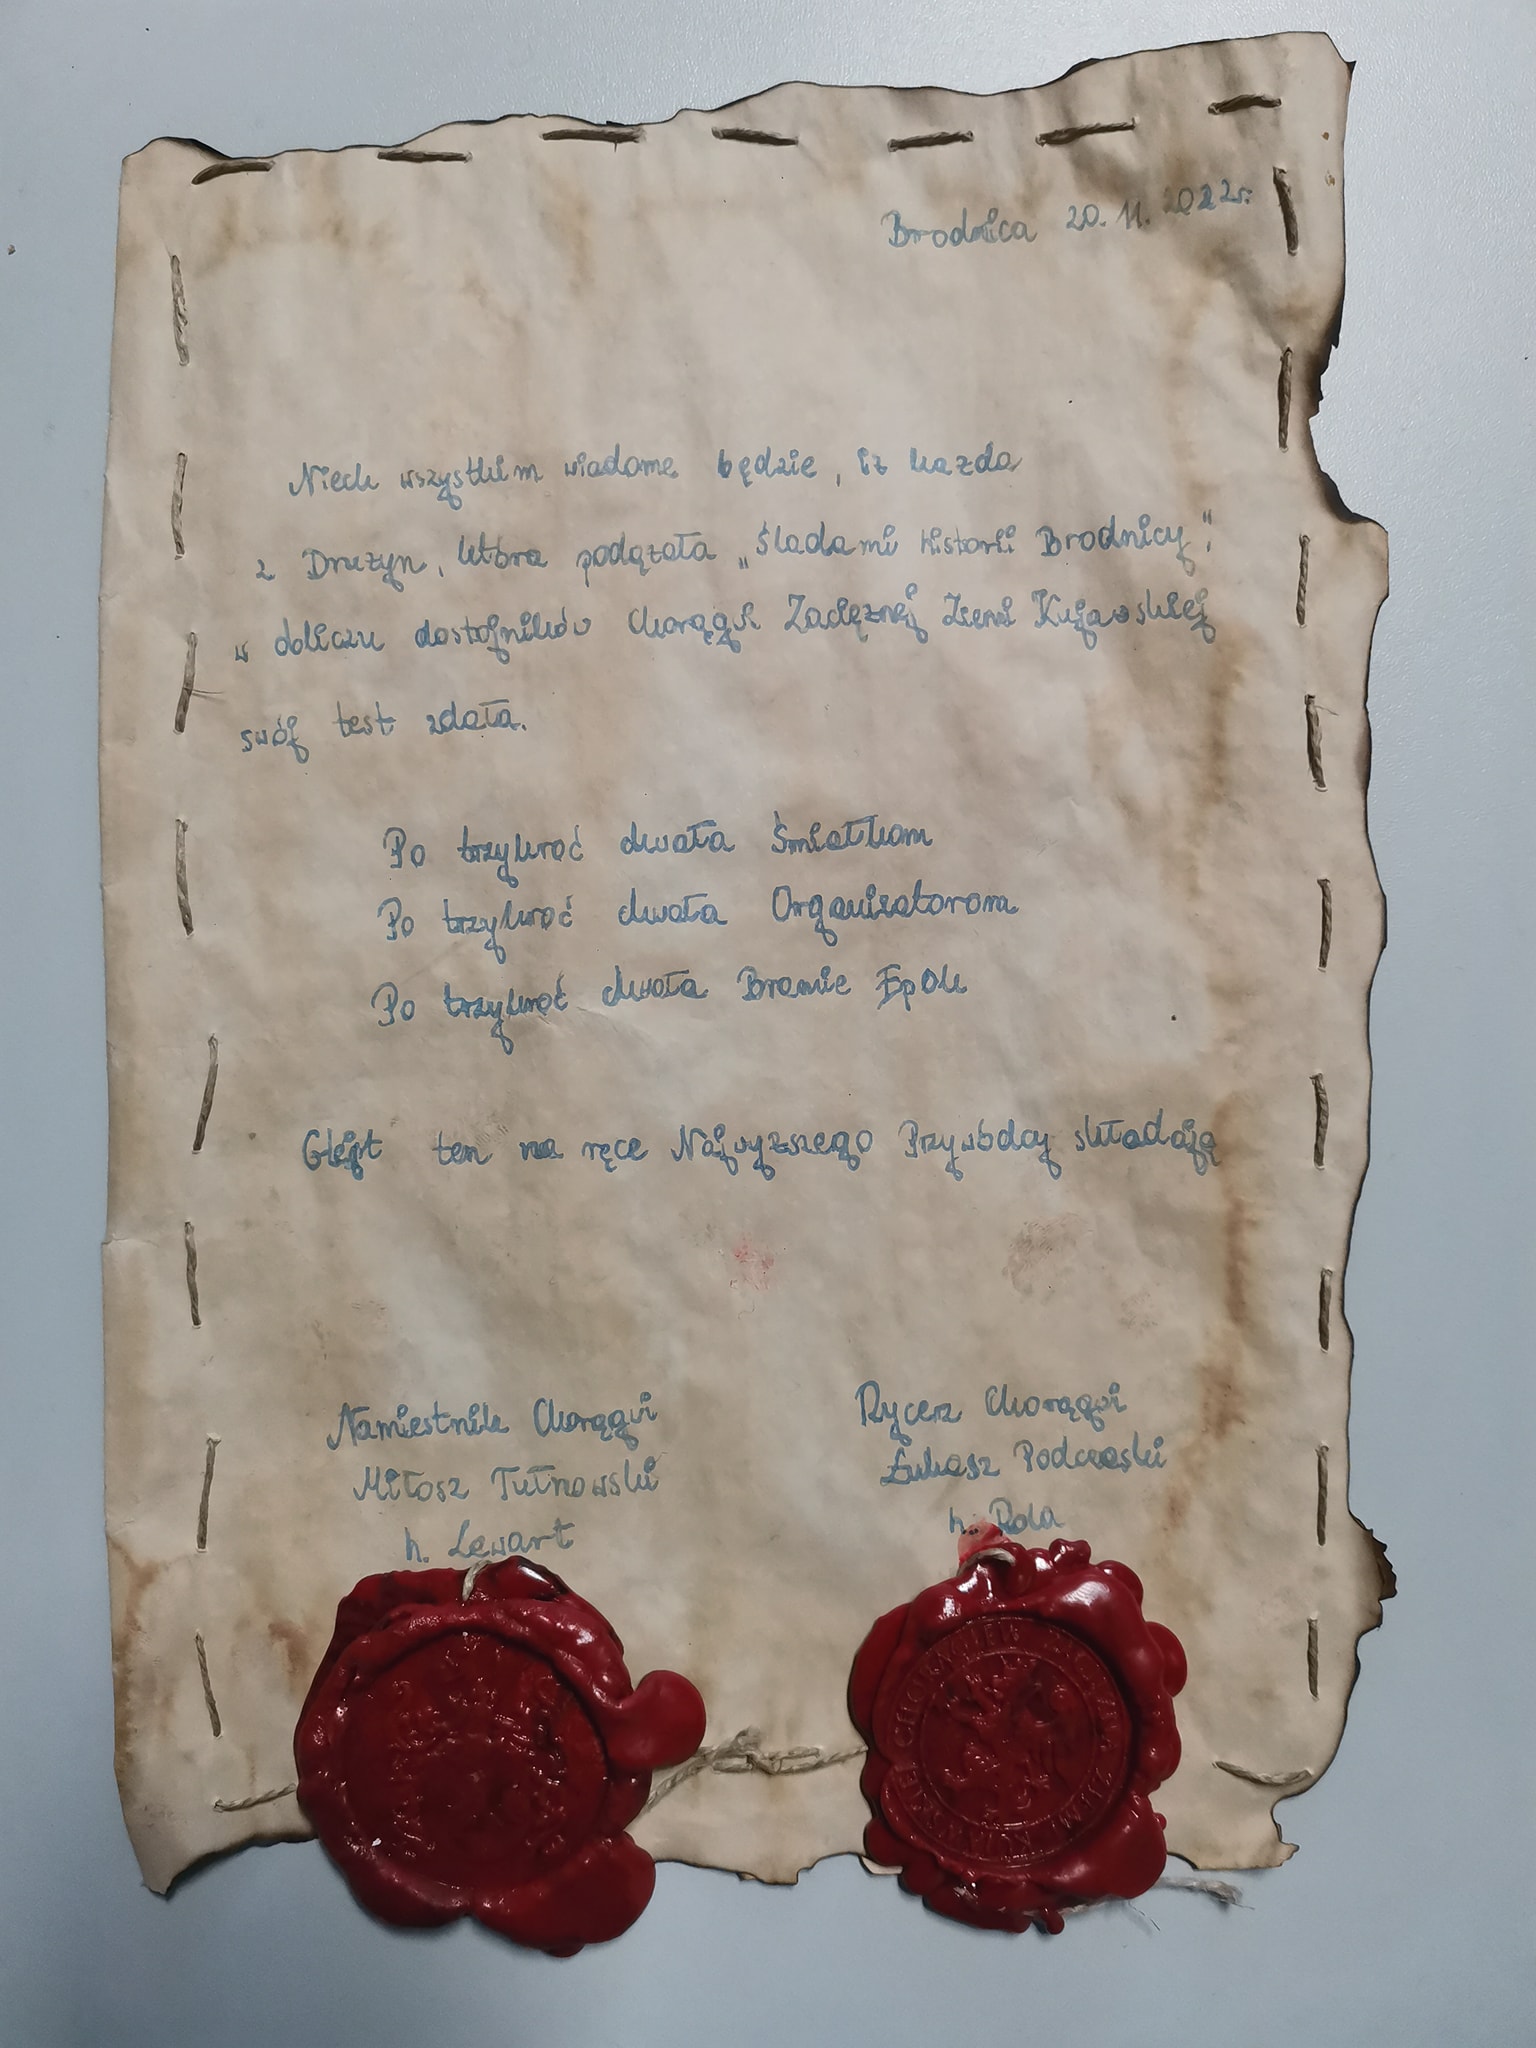 Brodnica 20.11.2022r.
Niech wszystkim wiadome będzie, iż każda
z Drużyn, która podążała „Śladami historii Brodnicy",
w obliczu dostojników Chorągwi Zaciężnej Ziemi Kujawskiej
swój test zdała.
Po trzykroć chwała Śmiałkom
Po trzykroć chwała Organizatorom
Po trzykroć chwała Bramie Epok
Glejt ten na ręce Najwyższego Przywódcy składają
Namiestnik Chorągwi
Rycerz Chorągwi
Miłosz Tułnowski
Łukasz Podczaski
h. Lewart
h. Rola
ZIEMI KUJAWSKIEJ